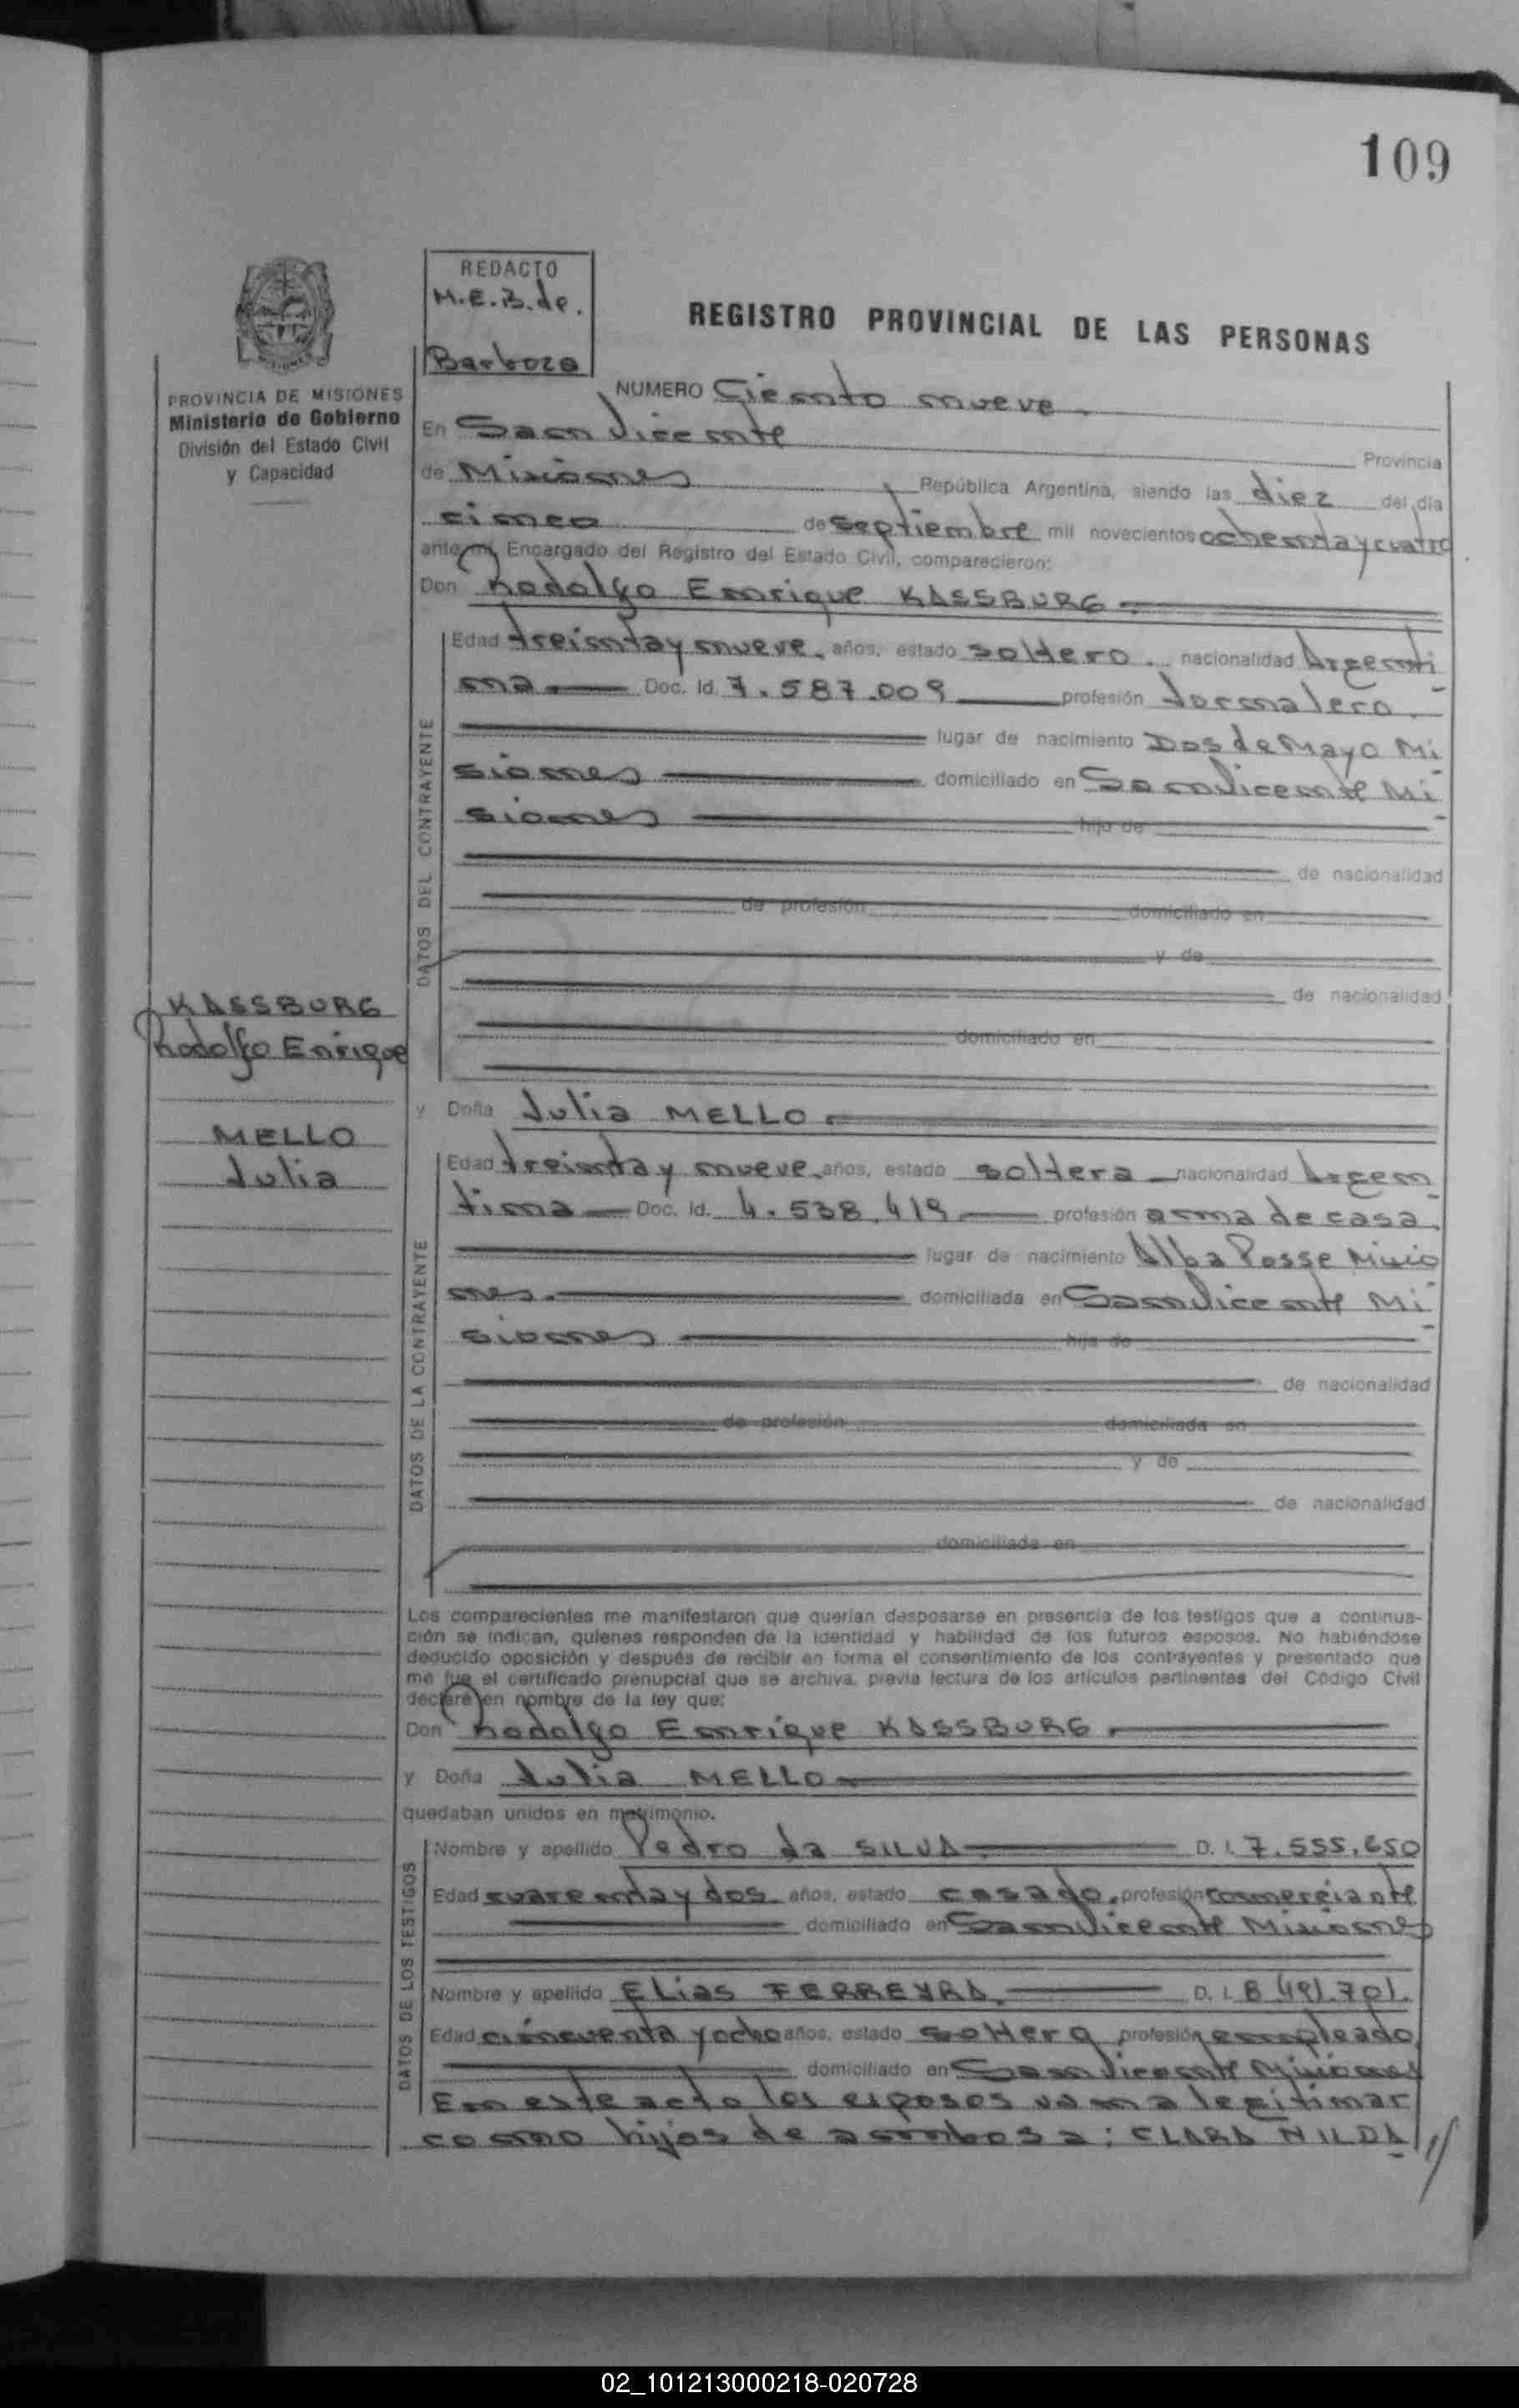 109
REDACTO
M.E.B.de.
Barboza
REGISTRO PROVINCIAL DE LAS PERSONAS
PROVINCIA DE MISIONES
Ministerio de Gobierno
División del Estado Civil
y Capacidad
NUMERO Ciento nueve.
En San Vicente Provincia
de Misiones República Argentina, siendo las diez del día
cinco de septiembre mil novecientos ochenta y cuatro
ante mí, Encargado del Registro del Estado Civil, comparecieron:
Don Rodolfo Enrique KASSBURG
DATOS DEL CONTRAYENTE
Edad treinta y nueve. años, estado soltero. nacionalidad Argenti
na. Doc. Id. 7.587.009 profesión Jornalero.
lugar de nacimiento Dos de Mayo Mi
siones domiciliado en San Vicente Mi
siones hijo de
de nacionalidad
de profesión domiciliado en
y de
de nacionalidad
domiciliado en
KASSBURG
Rodolfo Enrique
MELLO
Julia
y Doña Julia MELLO
DATOS DE LA CONTRAYENTE
Edad treinta y nueve. años, estado soltera nacionalidad Argen
tina Doc. Id. 4.538.419 profesión ama de casa.
lugar de nacimiento Alba Posse Misio
nes. domiciliada en San Vicente Mi
siones hija de
de nacionalidad
de profesión domiciliada en
y de
de nacionalidad
domiciliada en
Los comparecientes me manifestaron que querían desposarse en presencia de los testigos que a continua-
ción se indican, quienes responden de la identidad y habilidad de los futuros esposos. No habiéndose
deducido oposición y después de recibir en forma el consentimiento de los contrayentes y presentado que
me fue el certificado prenupcial que se archiva, previa lectura de los artículos pertinentes del Código Civil
declaré en nombre de la ley que:
Don Rodolfo Enrique KASSBURG.
y Doña Julia MELLO
quedaban unidos en matrimonio.
DATOS DE LOS TESTIGOS
Nombre y apellido Pedro da SILVA D. I. 7.555.650
Edad cuarenta y dos años, estado casado. profesión comerciante
domiciliado en San Vicente Misiones
Nombre y apellido Elias FERREYRA. D. I. 8.491.701.
Edad cincuenta y ocho años, estado soltero profesión empleado
domiciliado en San Vicente Misiones
En este acto los esposos van a legitimar
como hijos de ambos a: CLARA NILDA //
02_101213000218-020728